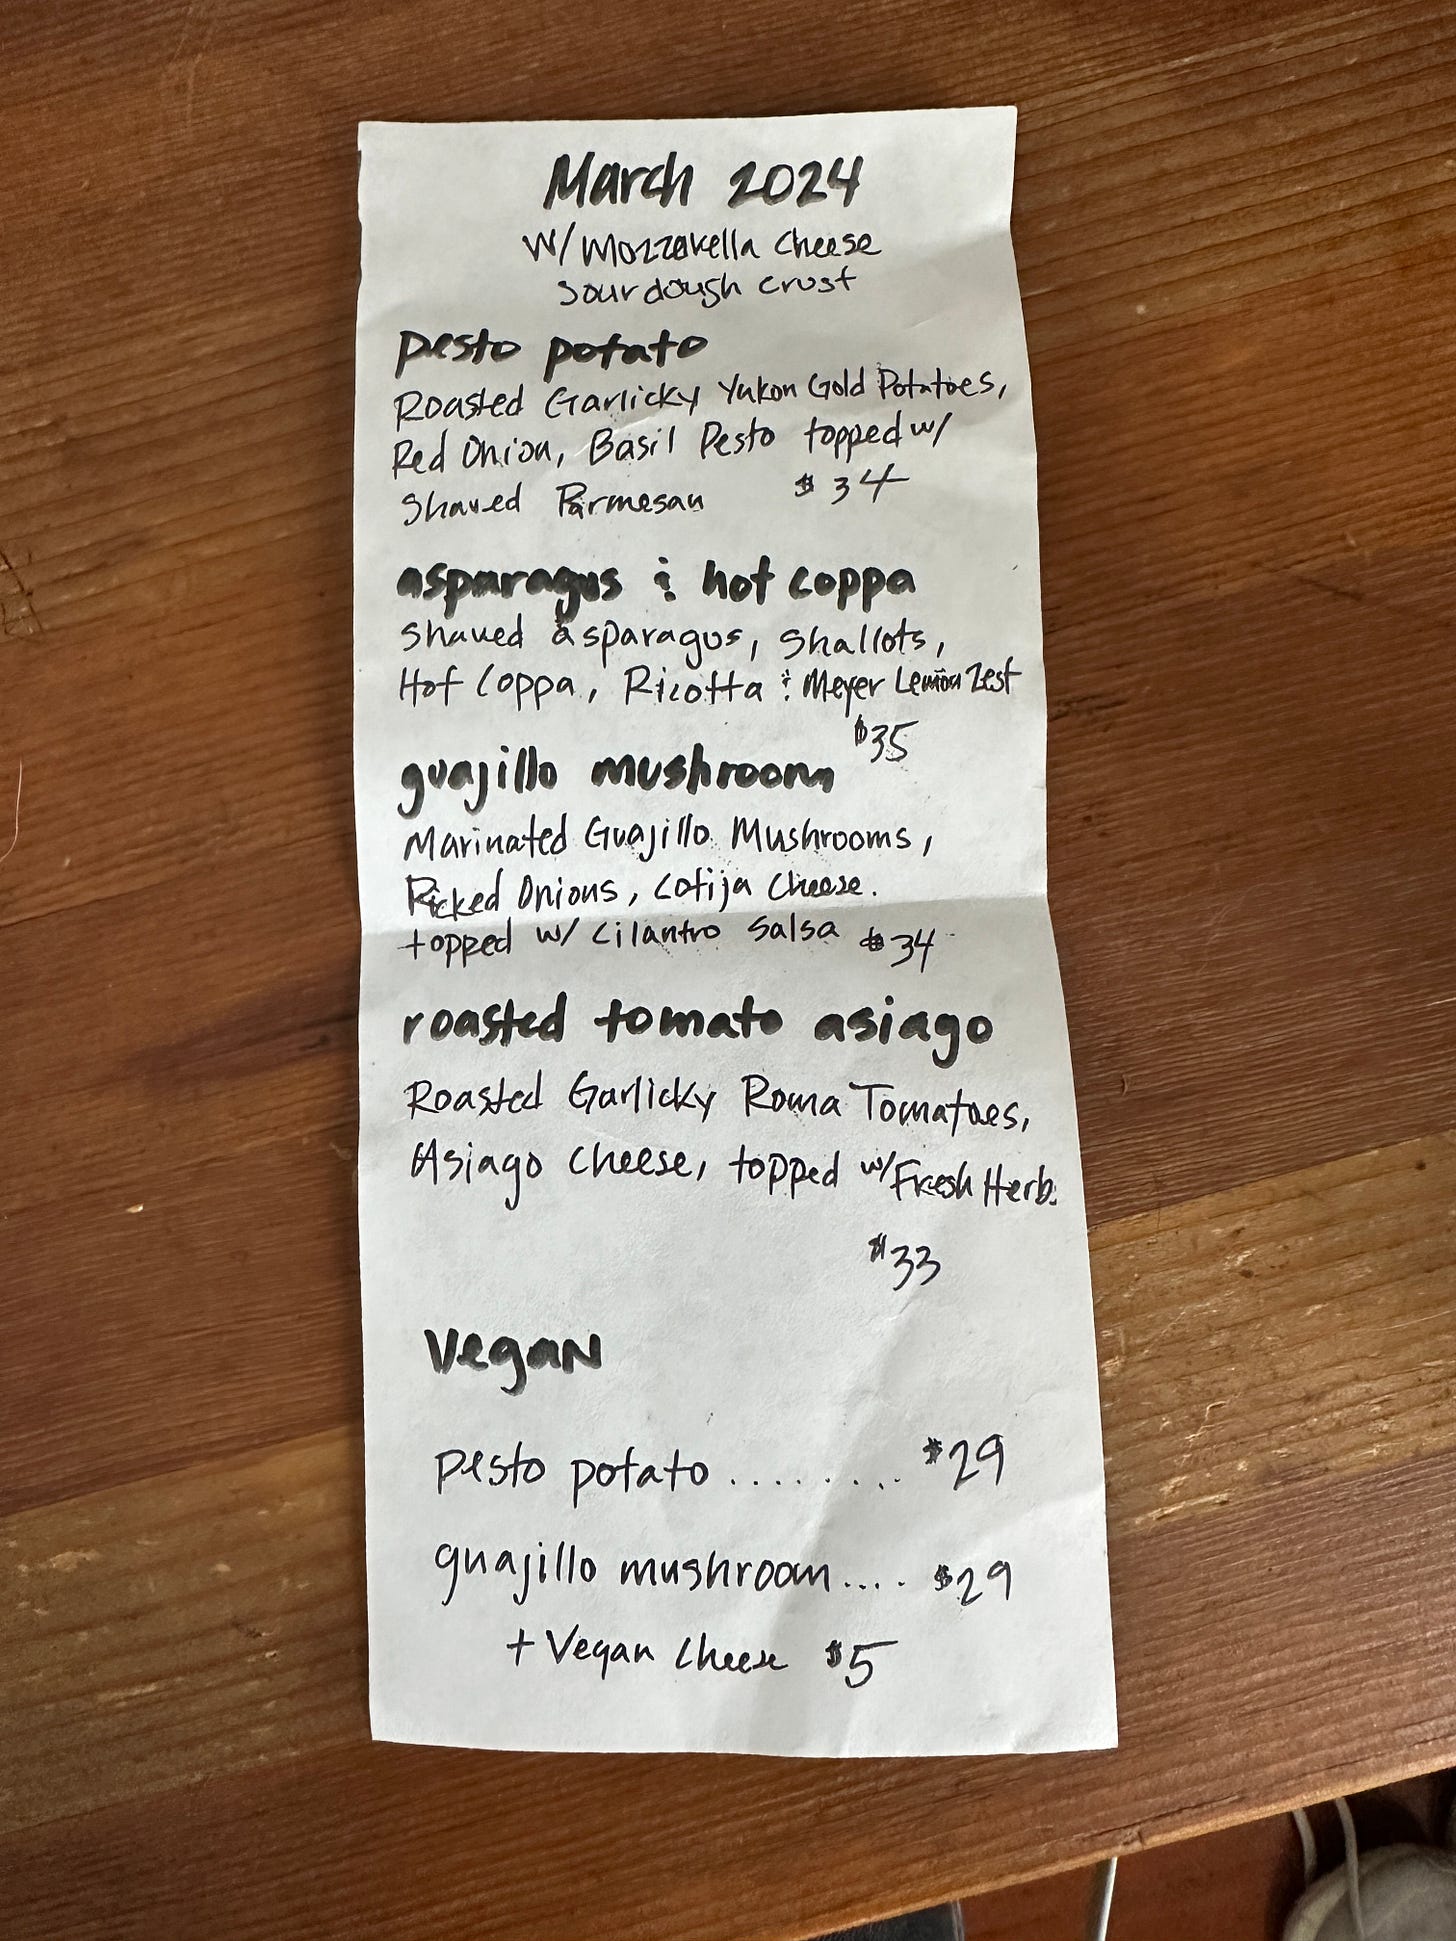 March 2024
w/ Mozzarella Cheese
Sourdough crust
pesto potato
Roasted Garlicky Yukon Gold Potatoes,
Red Onion, Basil Pesto topped w/
Shaved Parmesan $34
asparagus & hot coppa
Shaved asparagus, Shallots,
Hot Coppa, Ricotta & Meyer Lemon Zest
$35
guajillo mushroom
Marinated Guajillo Mushrooms,
Picked Onions, Cotija Cheese.
topped w/ Cilantro Salsa $34
roasted tomato asiago
Roasted Garlicky Roma Tomatoes,
Asiago Cheese, topped w/ Fresh Herb.
$33
Vegan
pesto potato ......... $29
guajillo mushroom.... $29
+ Vegan Cheese $5